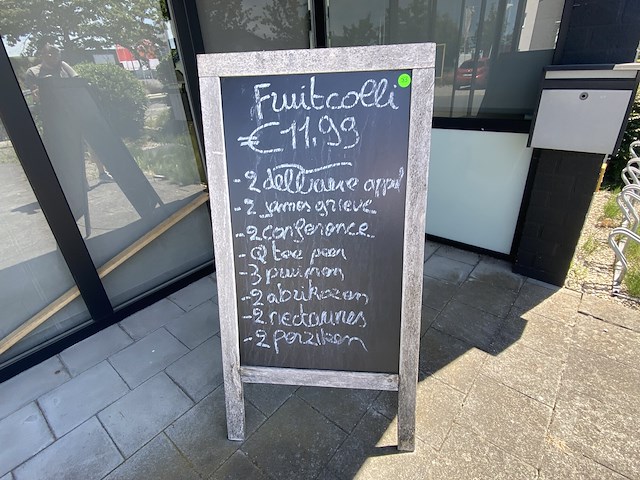 Fruitcolli
€11.99
-2 delbarre appel
-2 james grieve
-2 conference
-2 tee peer
-3 pruimen
-2 abrikozen
-2 nectarines
-2 perziken